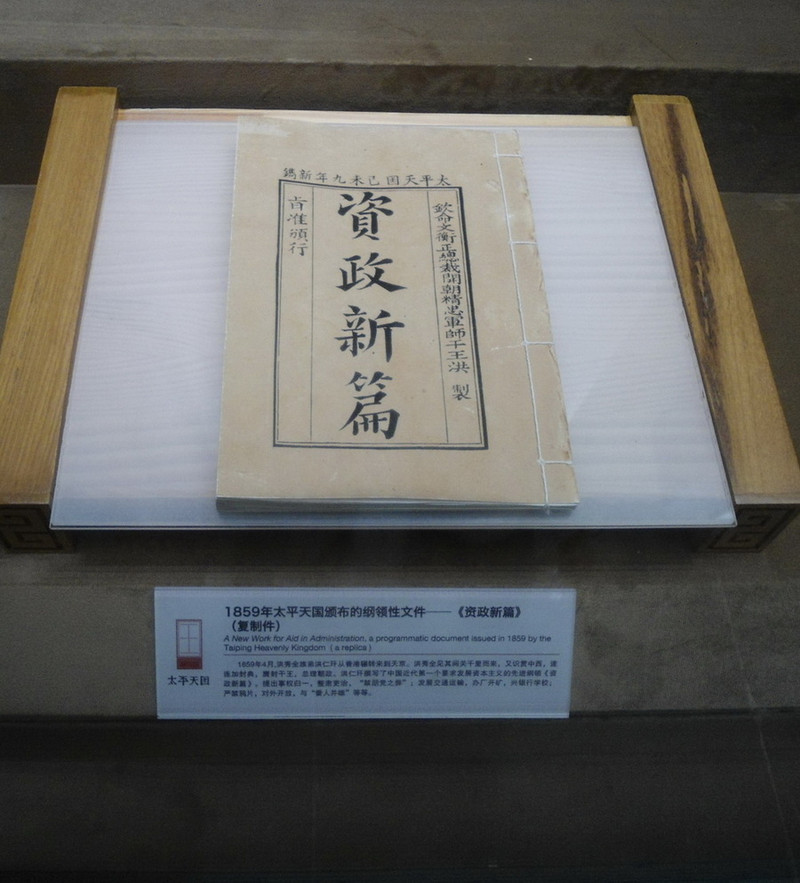 太平天囯己未九年新鐫
欽命文衡正總裁開朝精忠軍師干王洪 製
資政新篇
旨准頒行
1859年太平天国颁布的纲领性文件——《资政新篇》
（复制件）
A New Work for Aid in Administration, a programmatic document issued in 1859 by the
Taiping Heavenly Kingdom ( a replica )
太平天囯
1859年4月,洪秀全族弟洪仁玕从香港辗转来到天京。洪秀全见其间关千里而来，又识贯中西，遂
连加封典，晋封干王，总理朝政。洪仁玕撰写了中国近代第一个要求发展资本主义的先进纲领《资
政新篇》，提出事权归一，整肃吏治，“禁朋党之弊”；发展交通运输，办厂开矿，兴银行学校，
严禁鸦片，对外开放，与“番人并雄”等等。